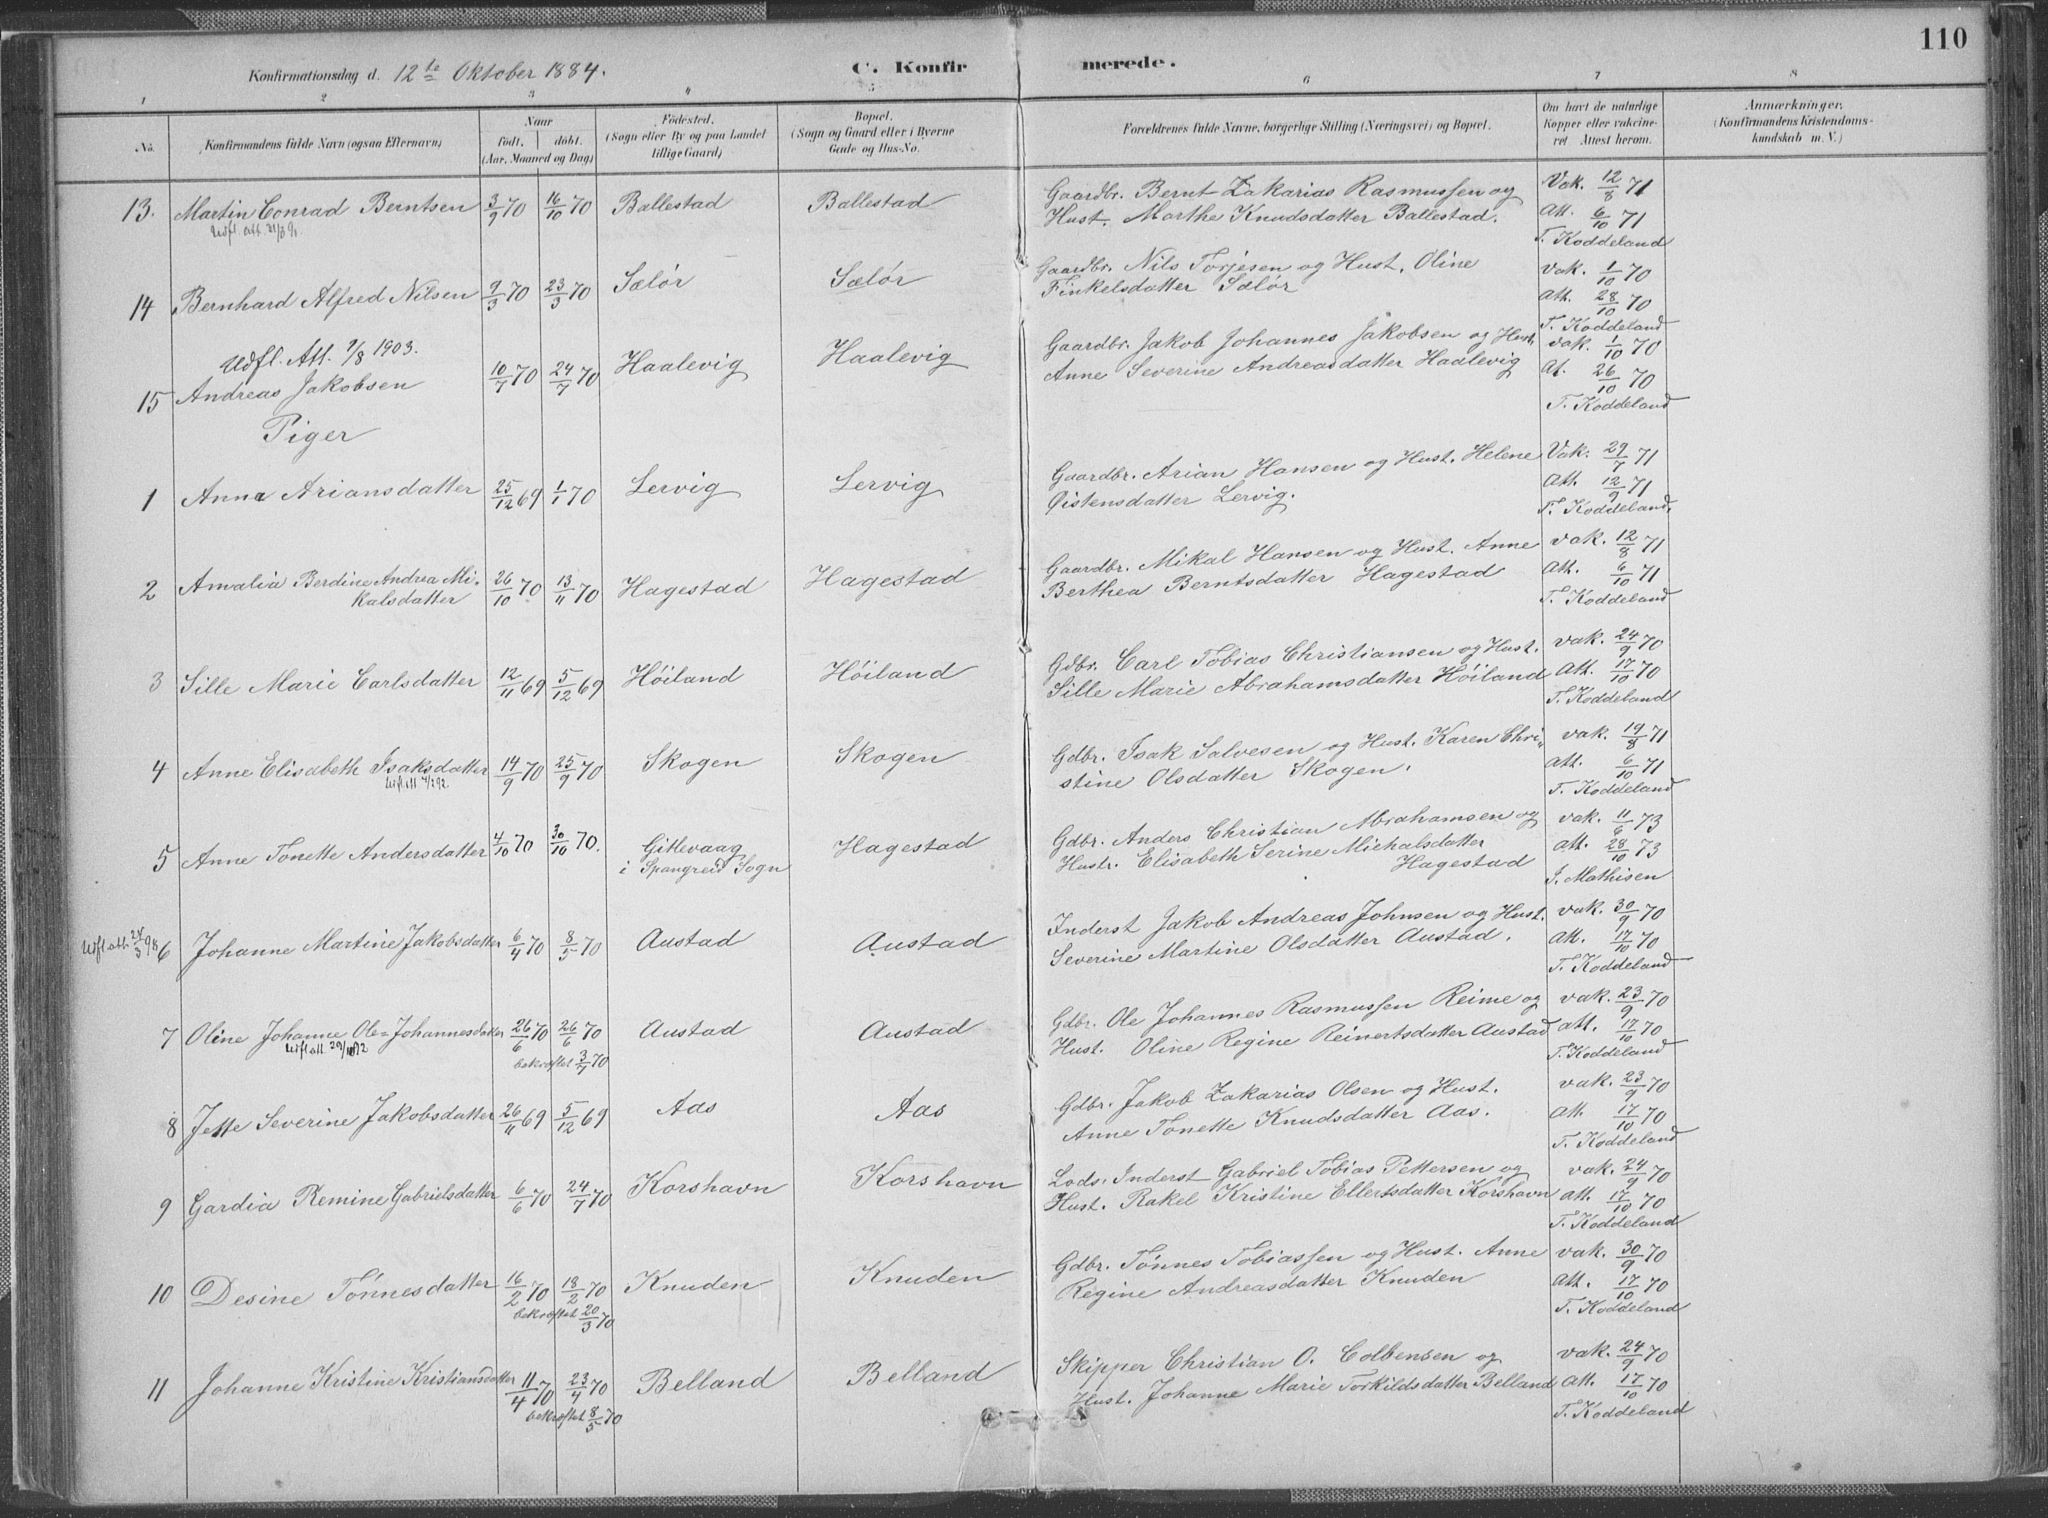 110
Konfirmationsdag d. 12te Oktober 1884.
C. Konfirmerede.
1 2 3 4 5 6 7 8
No.
Konfirmandens fulde Navn (ogsaa Efternavn)
Naar
født. døbt.
(Aar, Maaned og Dag)
Fødested.
(Sogn eller By og paa Landet
tillige Gaard)
Bopæl.
(Sogn og Gaard eller i Byerne
Gade og Hus-No.
Forældrenes fulde Navne, borgerlige Stilling (Næringsvei) og Bopæl.
Om havt de naturlige
Kopper eller vakcine-
ret Attest herom.
Anmærkninger.
(Konfirmandens Kristendoms-
kundskab m. V.)
13. Martin Conrad Berntsen 3/9 70 16/10 70 Ballestad Ballestad Gaardbr. Bernt Zakarias Rasmussen og Vak. 12/8 71
Udfl. Att.
Hust. Marthe Knudsdatter Ballestad. Att. 6/10 71
T. Koddeland
14 Bernhard Alfred Nilsen 9/3 70 23/3 70 Sælør Sælør Gaardbr. Nils Torjesen og Hust. Oline vak. 1/10 70
Finkelsdatter Sælør Att. 28/10 70
T. Koddeland
Udfl. Att. 7/8 1903.
15 Andreas Jakobsen 10/7 70 24/7 70 Haalevig Haalevig Gaardbr. Jakob Johannes Jakobsen og Hust. vak. 1/10 70
Anne Severine Andreasdatter Haalevig At. 26/10 70
T. Koddeland
Piger
1 Anna Ariansdatter 25/12 69 1/1 70 Lervig Lervig Gaardbr. Arian Hansen og Hust. Helene Vak. 29/7 71
Øistensdatter Lervig. Att. 12/9 71
T. Koddeland.
2 Amalia Berdine Andrea Mi- 26/10 70 13/11 70 Hagestad Hagestad Gaardbr. Mikal Hansen og Hust. Anne vak. 12/8 71
kalsdatter Berthea Berntsdatter Hagestad Att. 6/10 71
T. Koddeland
3 Sille Marie Carlsdatter 12/11 69 5/12 69 Høiland Høiland Gdbr. Carl Tobias Christiansen og Hust. vak. 24/9 70
Sille Marie Abrahamsdatter Høiland Att. 17/10 70
T. Koddeland
4 Anne Elisabeth Isaksdatter 14/9 70 25/9 70 Skogen Skogen Gdbr. Isak Salvesen og Hust. Karen Chri- vak. 19/8 71
Udfl. att
stine Olsdatter Skogen. att. 6/10 71
T. Koddeland
5 Anne Tonette Andersdatter 4/10 70 30/10 70. Gitlevaag Hagestad Gdbr. Anders Christian Abrahamsen og vak. 11/6 73
i Spangreid Sogn Hustr. Elisabeth Serine Michalsdatter att. 28/10 73
Hagestad J. Mathisen
Udfl. att. 6 Johanne Martine Jakobsdatter 6/4 70 8/5 70 Austad Austad Inderst Jakob Andreas Johnsen og Hust. vak. 30/9 70
Severine Martine Olsdatter Austad. att. 17/10 70
T. Koddeland
7 Oline Johanne Ole-Johannesdatter 26/6 70 26/6 70 Austad Austad Gdbr. Ole Johannes Rasmussen Reime og vak. 23/9 70
Udfl att
bekræftet 3/7 70
Hust. Oline Regine Reinertsdatter Austad att. 17/10 70
T. Koddeland
8 Jette Severine Jakobsdatter 26/11 69 5/12 69 Aas Aas Gdbr. Jakob Zakarias Olsen og Hust. vak. 23/9 70
Anne Tonette Knudsdatter Aas. att. 17/10 70
T. Koddeland
9 Gardia Remine Gabrielsdatter 6/6 70 24/7 70 Korshavn Korshavn Lods. Inderst Gabriel Tobias Pettersen og vak. 24/9 70
Hust. Rakel Kristine Ellertsdatter Korshavn att. 17/10 70
T. Koddeland
10 Desine Tønnesdatter 16/2 70 18/2 70 Knuden Knuden Gdbr. Tønnes Tobiassen og Hust. Anne vak. 30/9 70
bekræftet 20/3 70
Regine Andreasdatter Knuden att. 17/10 70
T. Koddeland
11 Johanne Kristine Kristiansdatter 11/4 70 23/4 70 Belland Belland Skipper Christian O. Colbensen og vak. 24/9 70
bekræftet 8/5 70
Hust. Johanne Marie Torkildsdatter Belland att. 17/10 70
T. Koddeland